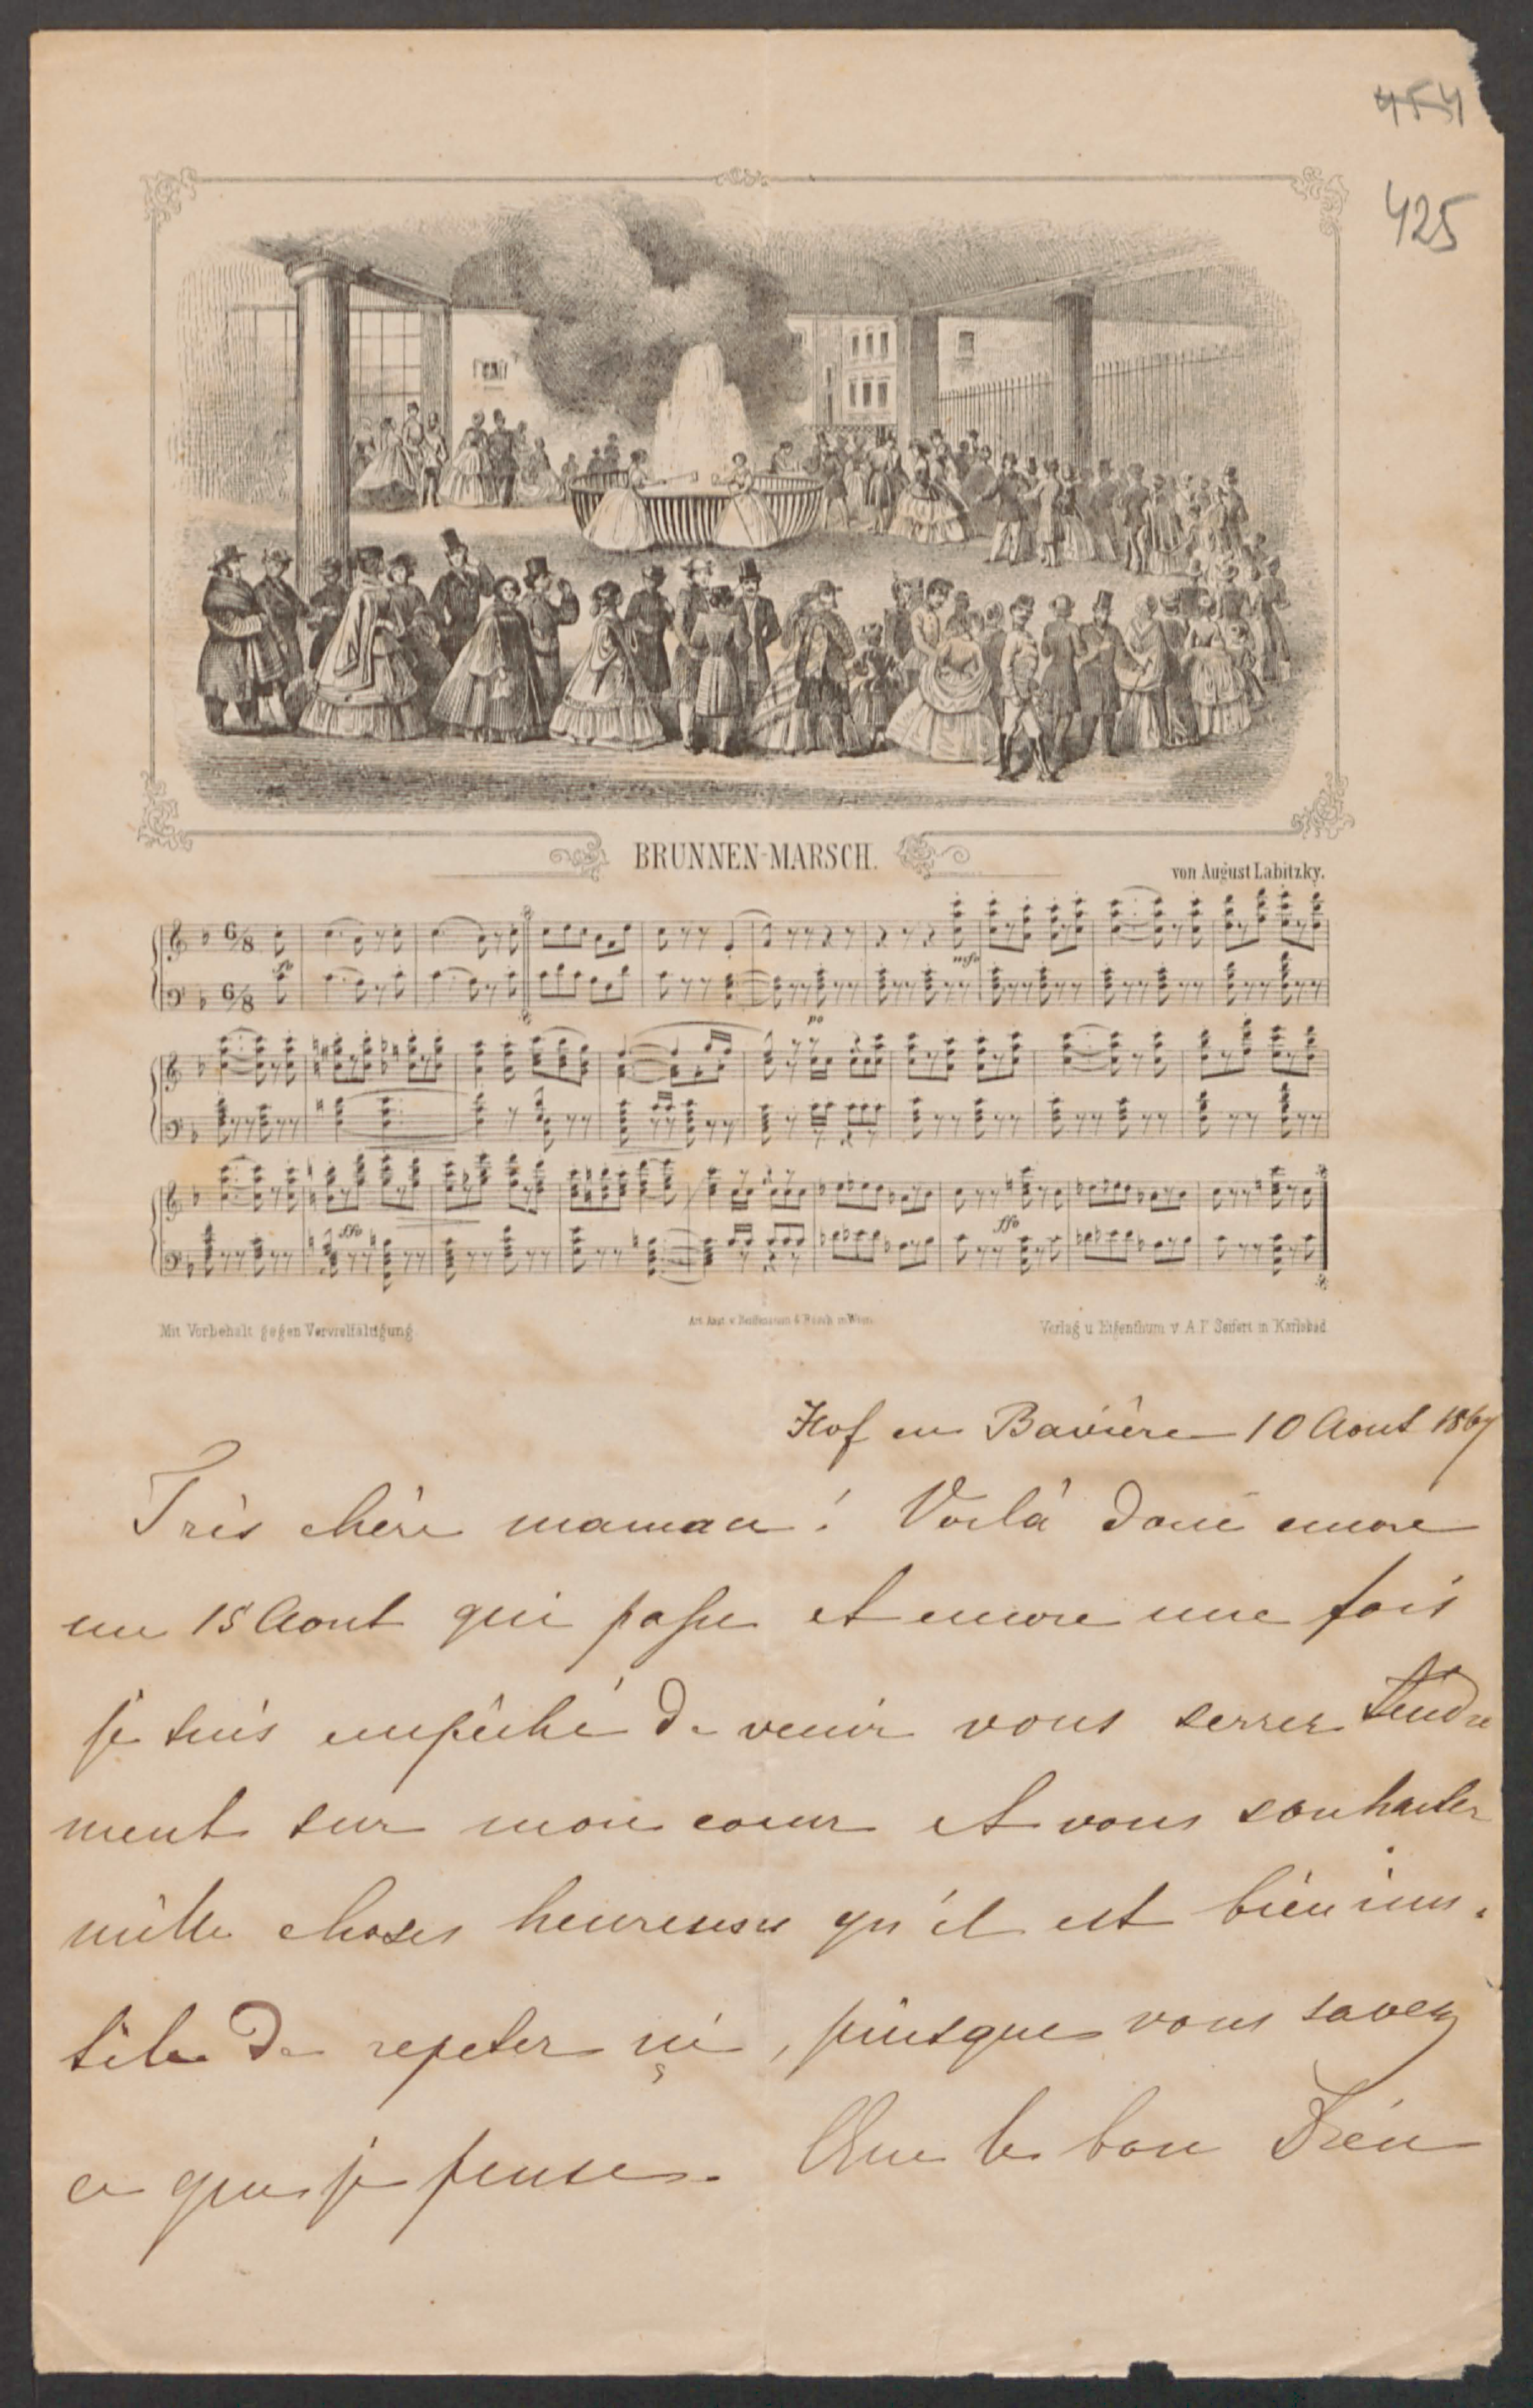 454
425
BRUNNEN-MARSCH.
von August Labitzky.
6/8
mfo
6/8
po
ffo
ffo
Mit Vorbehalt gegen Vervielfältigung
Art. Anst. v. Reiffenstein & Rösch in Wien
Verlag u Eigenthum v A. F Seifert in Karlsbad
Hof en Bavière 10 Aout 1867
Très chère maman! Voilà donc encore
un 15 Aout qui passe et encore une fois
je suis empêché de venir vous serrer tendre
ment sur mon coeur et vous souhaiter
mille choses heureuses qu'il est bien inu-
tile de repeter ici, puisque vous savez
ce que je pense. Que le bon Dieu